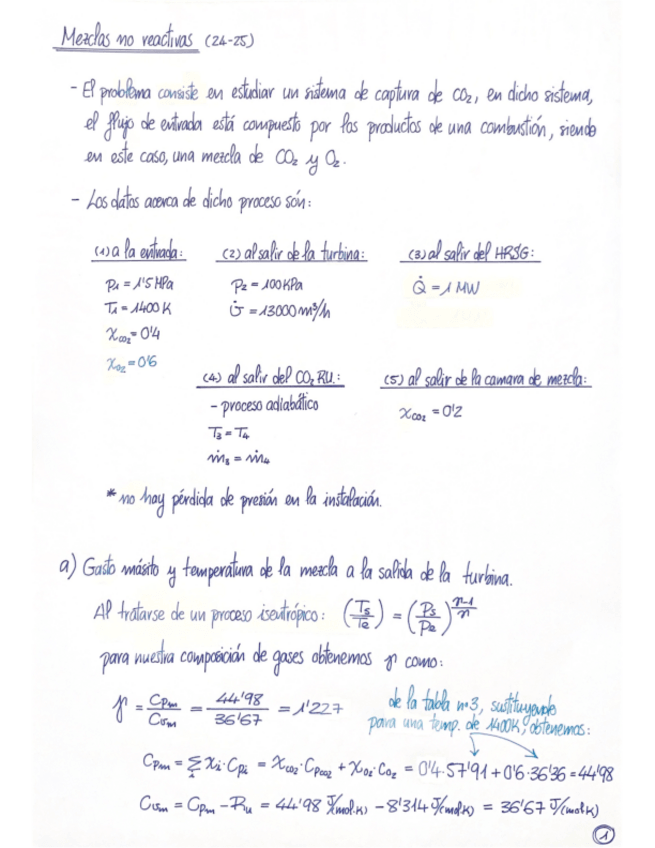 Mezclas no reactivas (24-25)
- El problema consiste en estudiar un sistema de captura de CO₂, en dicho sistema,
el flujo de entrada está compuesto por los productos de una combustión, siendo
en este caso, una mezcla de CO₂ y O₂.
- Los datos acerca de dicho proceso són:
(1) a la entrada:
P₁ = 1'5 MPa
T₁ = 1400 K
χCO₂ = 0'4
χO₂ = 0'6
(2) al salir de la turbina:
P₂ = 100 KPa
U̇ = 13000 m³/h
(3) al salir del HRSG:
Q̇ = 1 MW
(4) al salir del CO₂ RU.:
- proceso adiabático
T₃ = T₄
ṁ₃ = ṁ₄
(5) al salir de la camara de mezcla:
χCO₂ = 0'2
* no hay pérdida de presión en la instalación.
a) Gasto másito y temperatura de la mezcla a la salida de la turbina.
Al tratarse de un proceso isentrópico: (Ts/Te) = (Ps/Pe)^((γ-1)/γ)
para nuestra composición de gases obtenemos γ como:
γ = Cpm/Cvm = 44'98/36'67 = 1'227
de la tabla nº3, sustituyendo
para una temp. de 1400K, obtenemos:
Cpm = Σᵢ χi · Cpi = χCO₂ · CpCO₂ + χO₂ · CO₂ = 0'4 · 57'91 + 0'6 · 36'36 = 44'98
Cvm = Cpm - Ru = 44'98 J/(mol·K) - 8'314 J/(mol·K) = 36'67 J/(mol·K)
1